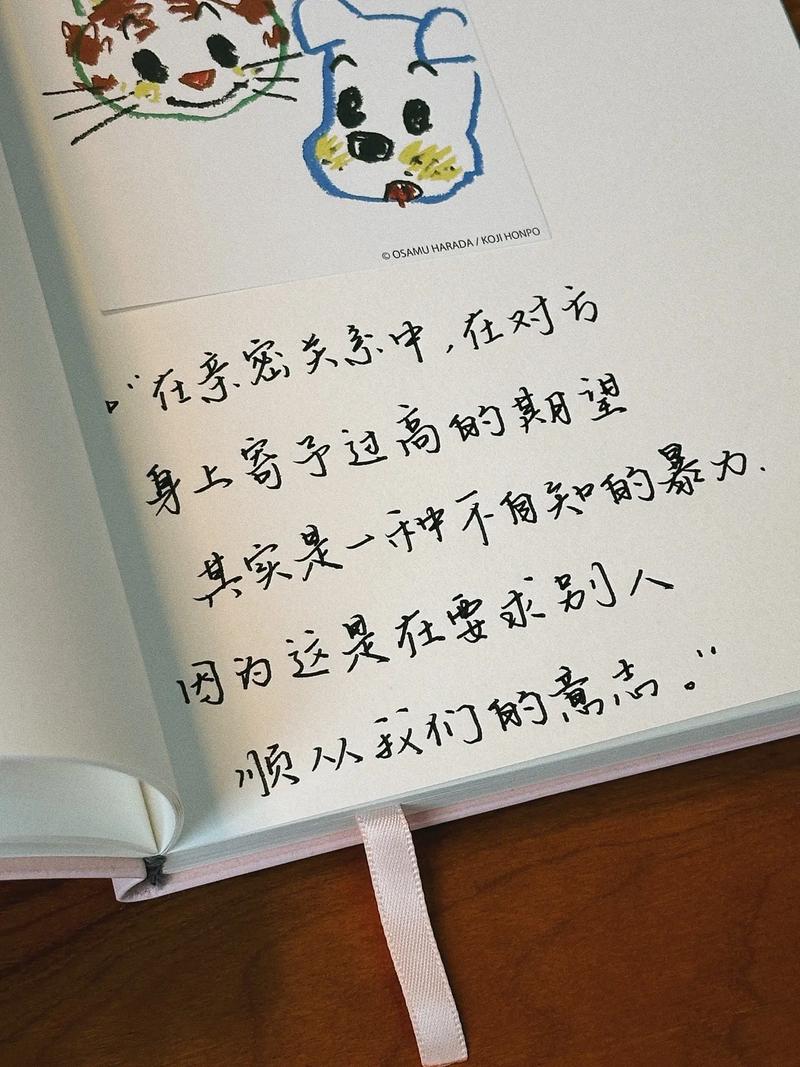 © OSAMU HARADA / KOJI HONPO
“在亲密关系中，在对方
身上寄予过高的期望
其实是一种不自知的暴力.
因为这是在要求别人
顺从我们的意志。”